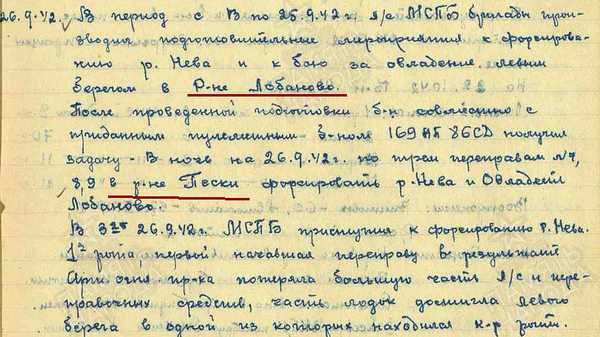 26.9.42г. В период с 8 по 25.9.42г. л/с МСПБ бригады произ-
водил подготовительные мероприятия к форсирова-
нию р. Нева и к бою за овладение левым
берегом в Р-не Лобаново.
После проведенной подготовки б-н совместно с
приданным пулеметным б-ном 169 86СД получил
задачу - В ночь на 26.9.42г. по трем переправам №7,
8,9 в р-не Пески форсировать р. Нева и Овладеть
Лобаново.
В 3 26.9.42г. МСПБ приступил к форсированию р. Нева.
1я рота первой начавшая переправу в результате
Арт огня пр-ка потеряла большую часть л/с и пере-
правочных средств, часть лодок достигла левого
берега в одной из которых находился к-р роты.